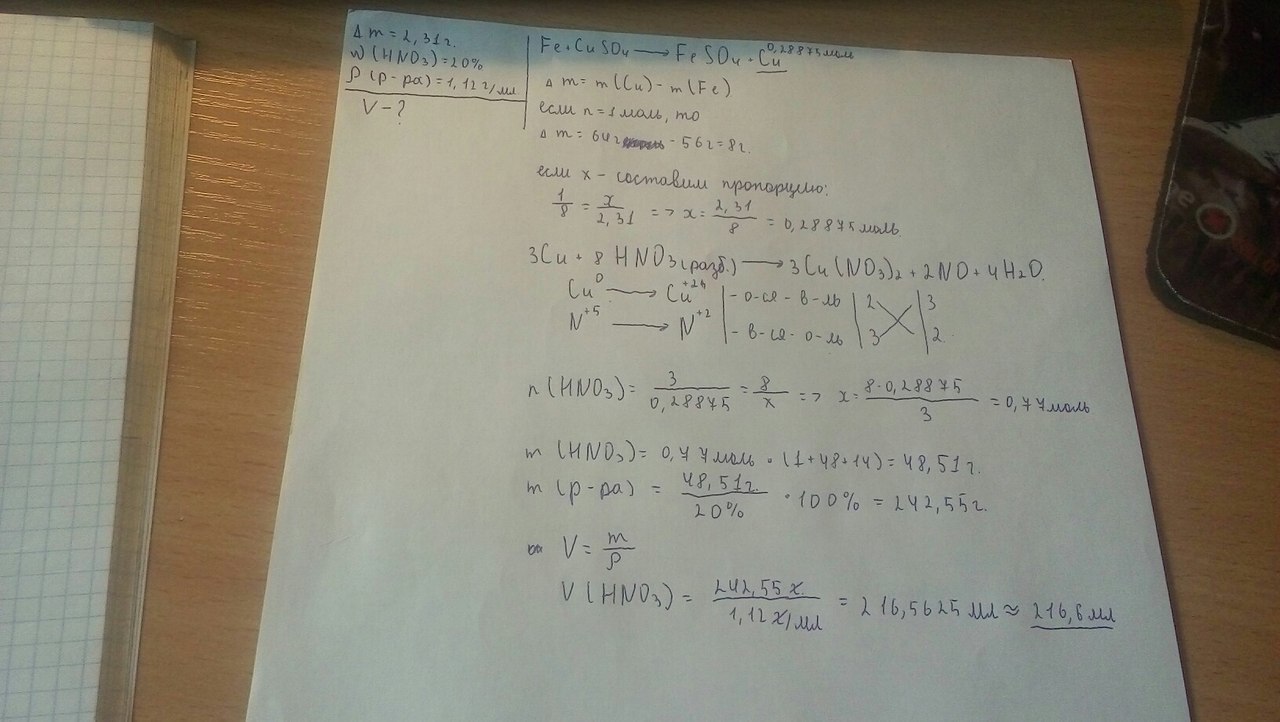 Δ m = 2,31г.
ω (HNO₃) = 20%
ρ (р-ра) = 1,12 г/мл
V - ?
Fe + CuSO₄ ⟶ FeSO₄ + Cu 0,28875 моль
Δ m = m (Cu) - m (Fe)
если n = 1 моль, то
Δ m = 64г - 56г = 8г.
если x - составим пропорцию:
1/8 = x/2,31 => x = 2,31/8 = 0,28875 моль.
3Cu + 8 HNO₃ (разб.) ⟶ 3Cu(NO₃)₂ + 2NO + 4H₂O.
Cu⁰ ⟶ Cu⁺² | - о-ся - в-ль | 2 | 3
N⁺⁵ ⟶ N⁺² | - в-ся - о-ль | 3 | 2.
n (HNO₃) = 3/0,28875 = 8/x => x = 8·0,28875/3 = 0,77 моль
m (HNO₃) = 0,77 моль · (1+48+14) = 48,51г.
m (р-ра) = 48,51г./20% · 100% = 242,55г.
V = m/ρ
V (HNO₃) = 242,55 г./1,12 г/мл = 216,5625 мл ≈ 216,6 мл